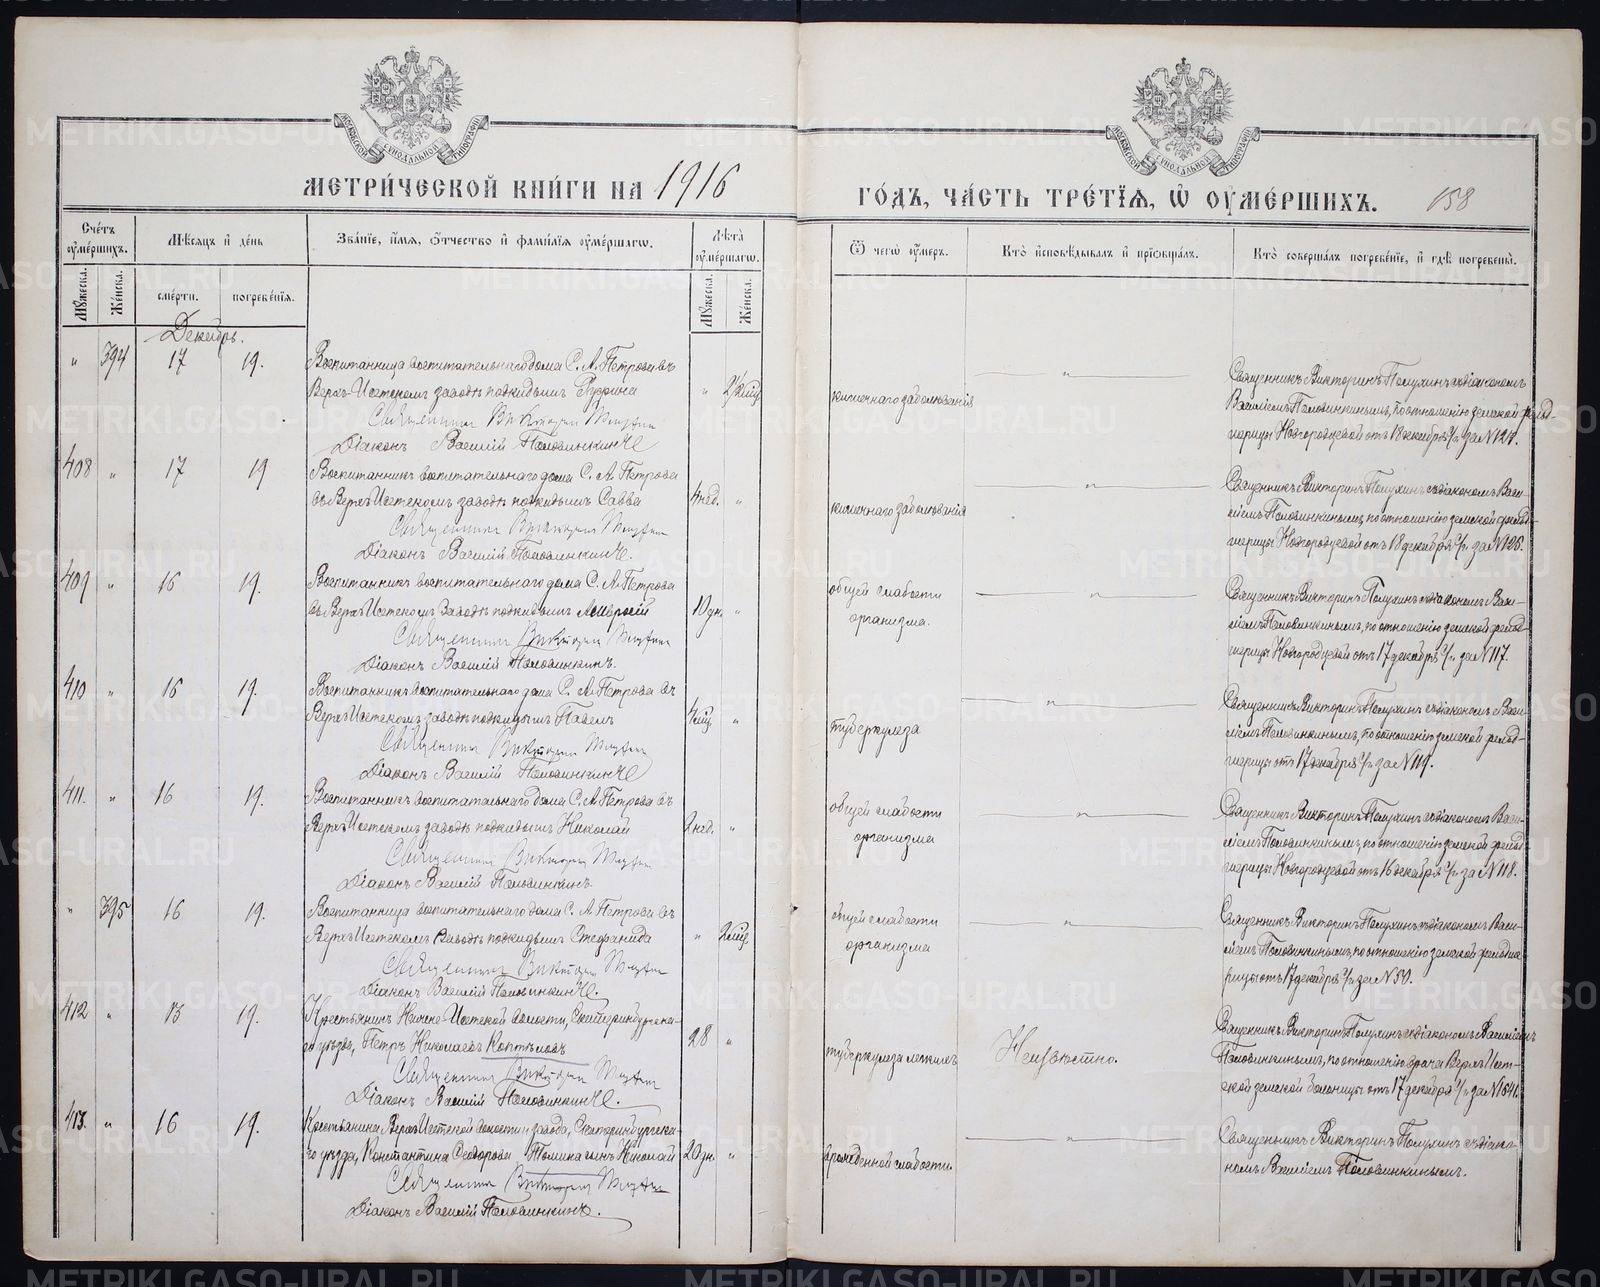 МЕТРИ́ЧЕСКОЙ КНИ́ГИ НА 1916
ГО́ДЪ, ЧА́СТЬ ТРЕ́ТІЯ, Ѿ ОУМЕ́РШИХЪ.
158
Сче́тъ оуме́ршихъ.
Мѣ́сяцъ и де́нь
Зва́ніе, и́мя, о́тчество и фами́лія оуме́ршагѡ.
Лѣ́та оуме́ршагѡ.
Ѿ чегѡ̀ оу́меръ.
Кто̀ исповѣ́дывалъ и пріѡбща́лъ.
Кто̀ соверша́лъ погребе́ніе, и гдѣ̀ погребены̀.
Мꙋ́жеска.
Же́нска.
сме́рти.
погребе́нія.
Мꙋ́жеска.
Же́нска.
Декабрь.
" 394 17 19.
Воспитанница воспитательнаго дома С. А. Петрова въ
Верхъ-Исетскомъ заводѣ подкидышъ
Священникъ Викторинъ
Діаконъ Василій Половинкинъ
" 2½ мѣс.
кишечнаго заболѣванія
"
Священникъ Викторинъ съ діакономъ
Василіемъ Половинкинымъ, по отношенію земской фельд-
шерицы Новгородцевой отъ 18 декабря с/г за № 127.
408 " 17 19
Воспитанникъ воспитательнаго дома С. А. Петрова
въ Верхъ-Исетскомъ заводѣ подкидышъ Савва
Священникъ Викторинъ
Діаконъ Василій Половинкинъ.
4 нед. "
кишечнаго заболѣванія
"
Священникъ Викторинъ съ діакономъ Васи-
ліемъ Половинкинымъ, по отношенію земской фельд-
шерицы Новгородцевой отъ 18 декабря с/г за № 126.
409 " 16 19.
Воспитанникъ воспитательнаго дома С. А. Петрова
въ Верхъ-Исетскомъ заводѣ подкидышъ Амвросій
Священникъ Викторинъ
Діаконъ Василій Половинкинъ.
10 дн. "
общей слабости
организма.
"
Священникъ Викторинъ съ діакономъ Васи-
ліемъ Половинкинымъ, по отношенію земской фельд-
шерицы Новгородцевой отъ 17 декабря с/г за № 117.
410 " 16 19.
Воспитанникъ воспитательнаго дома С. А. Петрова въ
Верхъ-Исетскомъ заводѣ подкидышъ Павелъ
Священникъ Викторинъ
Діаконъ Василій Половинкинъ
4 мѣс. "
туберкулеза
"
Священникъ Викторинъ съ діакономъ Васи-
ліемъ Половинкинымъ, по отношенію земской фельд-
шерицы отъ 17 декабря с/г за № 119.
411. " 16 19.
Воспитанникъ воспитательнаго дома С. А. Петрова въ
Верхъ-Исетскомъ заводѣ подкидышъ Николай
Священникъ Викторинъ
Діаконъ Василій Половинкинъ
2 нед. "
общей слабости
организма
"
Священникъ Викторинъ съ діакономъ Васи-
ліемъ Половинкинымъ, по отношенію земской фельд-
шерицы Новгородцевой отъ 16 декабря с/г за № 118.
" 395 16 19.
Воспитанница воспитательнаго дома С. А. Петрова въ
Верхъ-Исетскомъ заводѣ подкидышъ Стефанида
Священникъ Викторинъ
Діаконъ Василій Половинкинъ.
" 2 мѣс.
общей слабости
организма
"
Священникъ Викторинъ съ діакономъ Васи-
ліемъ Половинкинымъ, по отношенію земской фельдше-
рицы отъ 17 декабря с/г за №
412 " 15 19.
Крестьянинъ Нижне-Исетской волости, Екатеринбургска-
го уѣзда, Петръ Николаевъ Коптѣловъ
Священникъ Викторинъ
Діаконъ Василій Половинкинъ.
28 "
туберкулеза легкихъ
Неизвѣстно.
Священникъ Викторинъ съ діакономъ Василіемъ
Половинкинымъ, по отношенію врача Верхъ-Исет-
ской земской больницы отъ 17 декабря с/г за № 1641.
413. " 16 19.
Крестьянина Верхъ-Исетской волости и завода, Екатеринбургска-
го уѣзда, Константина Ѳеодорова сынъ Николай
Священникъ Викторинъ
Діаконъ Василій Половинкинъ.
20 дн. "
врожденной слабости.
"
Священникъ Викторинъ съ діако-
номъ Василіемъ Половинкинымъ.